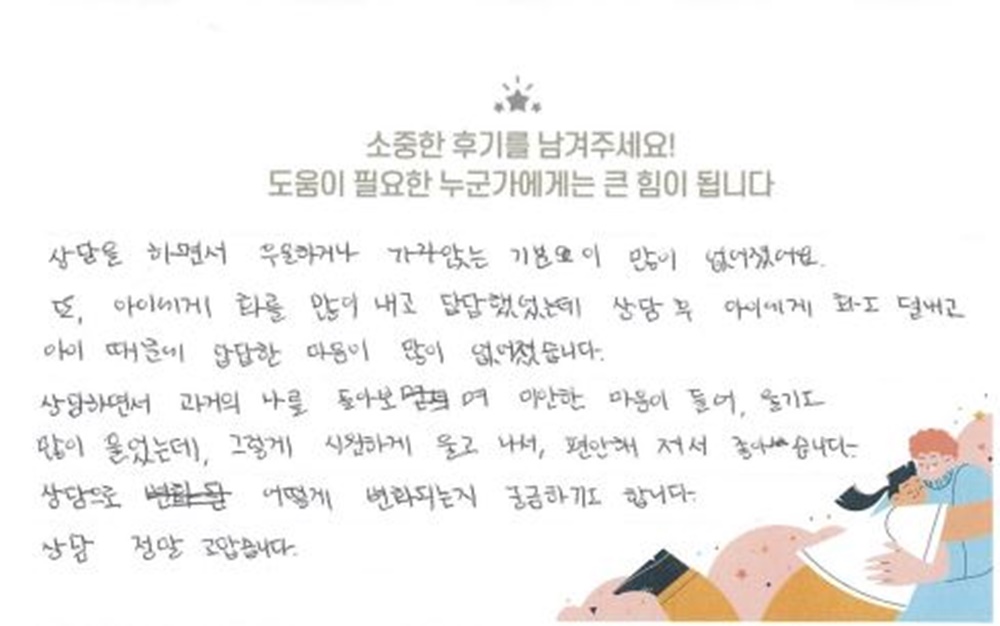 소중한 후기를 남겨주세요!
도움이 필요한 누군가에게는 큰 힘이 됩니다
상담을 하면서 우울하거나 가라앉는 기분이 많이 없어졌어요.
또, 아이에게 화를 많이 내고 답답했었는데 상담 후 아이에게 화도 덜내고
아이 때문에 답답한 마음이 많이 없어졌습니다.
상담하면서 과거의 나를 돌아보며 미안한 마음이 들어, 울기도
많이 울었는데, 그렇게 시원하게 울고 나서, 편안해 져서 좋아습니다.
상담으로 어떻게 변화되는지 궁금하기도 합니다.
상담 정말 고맙습니다.